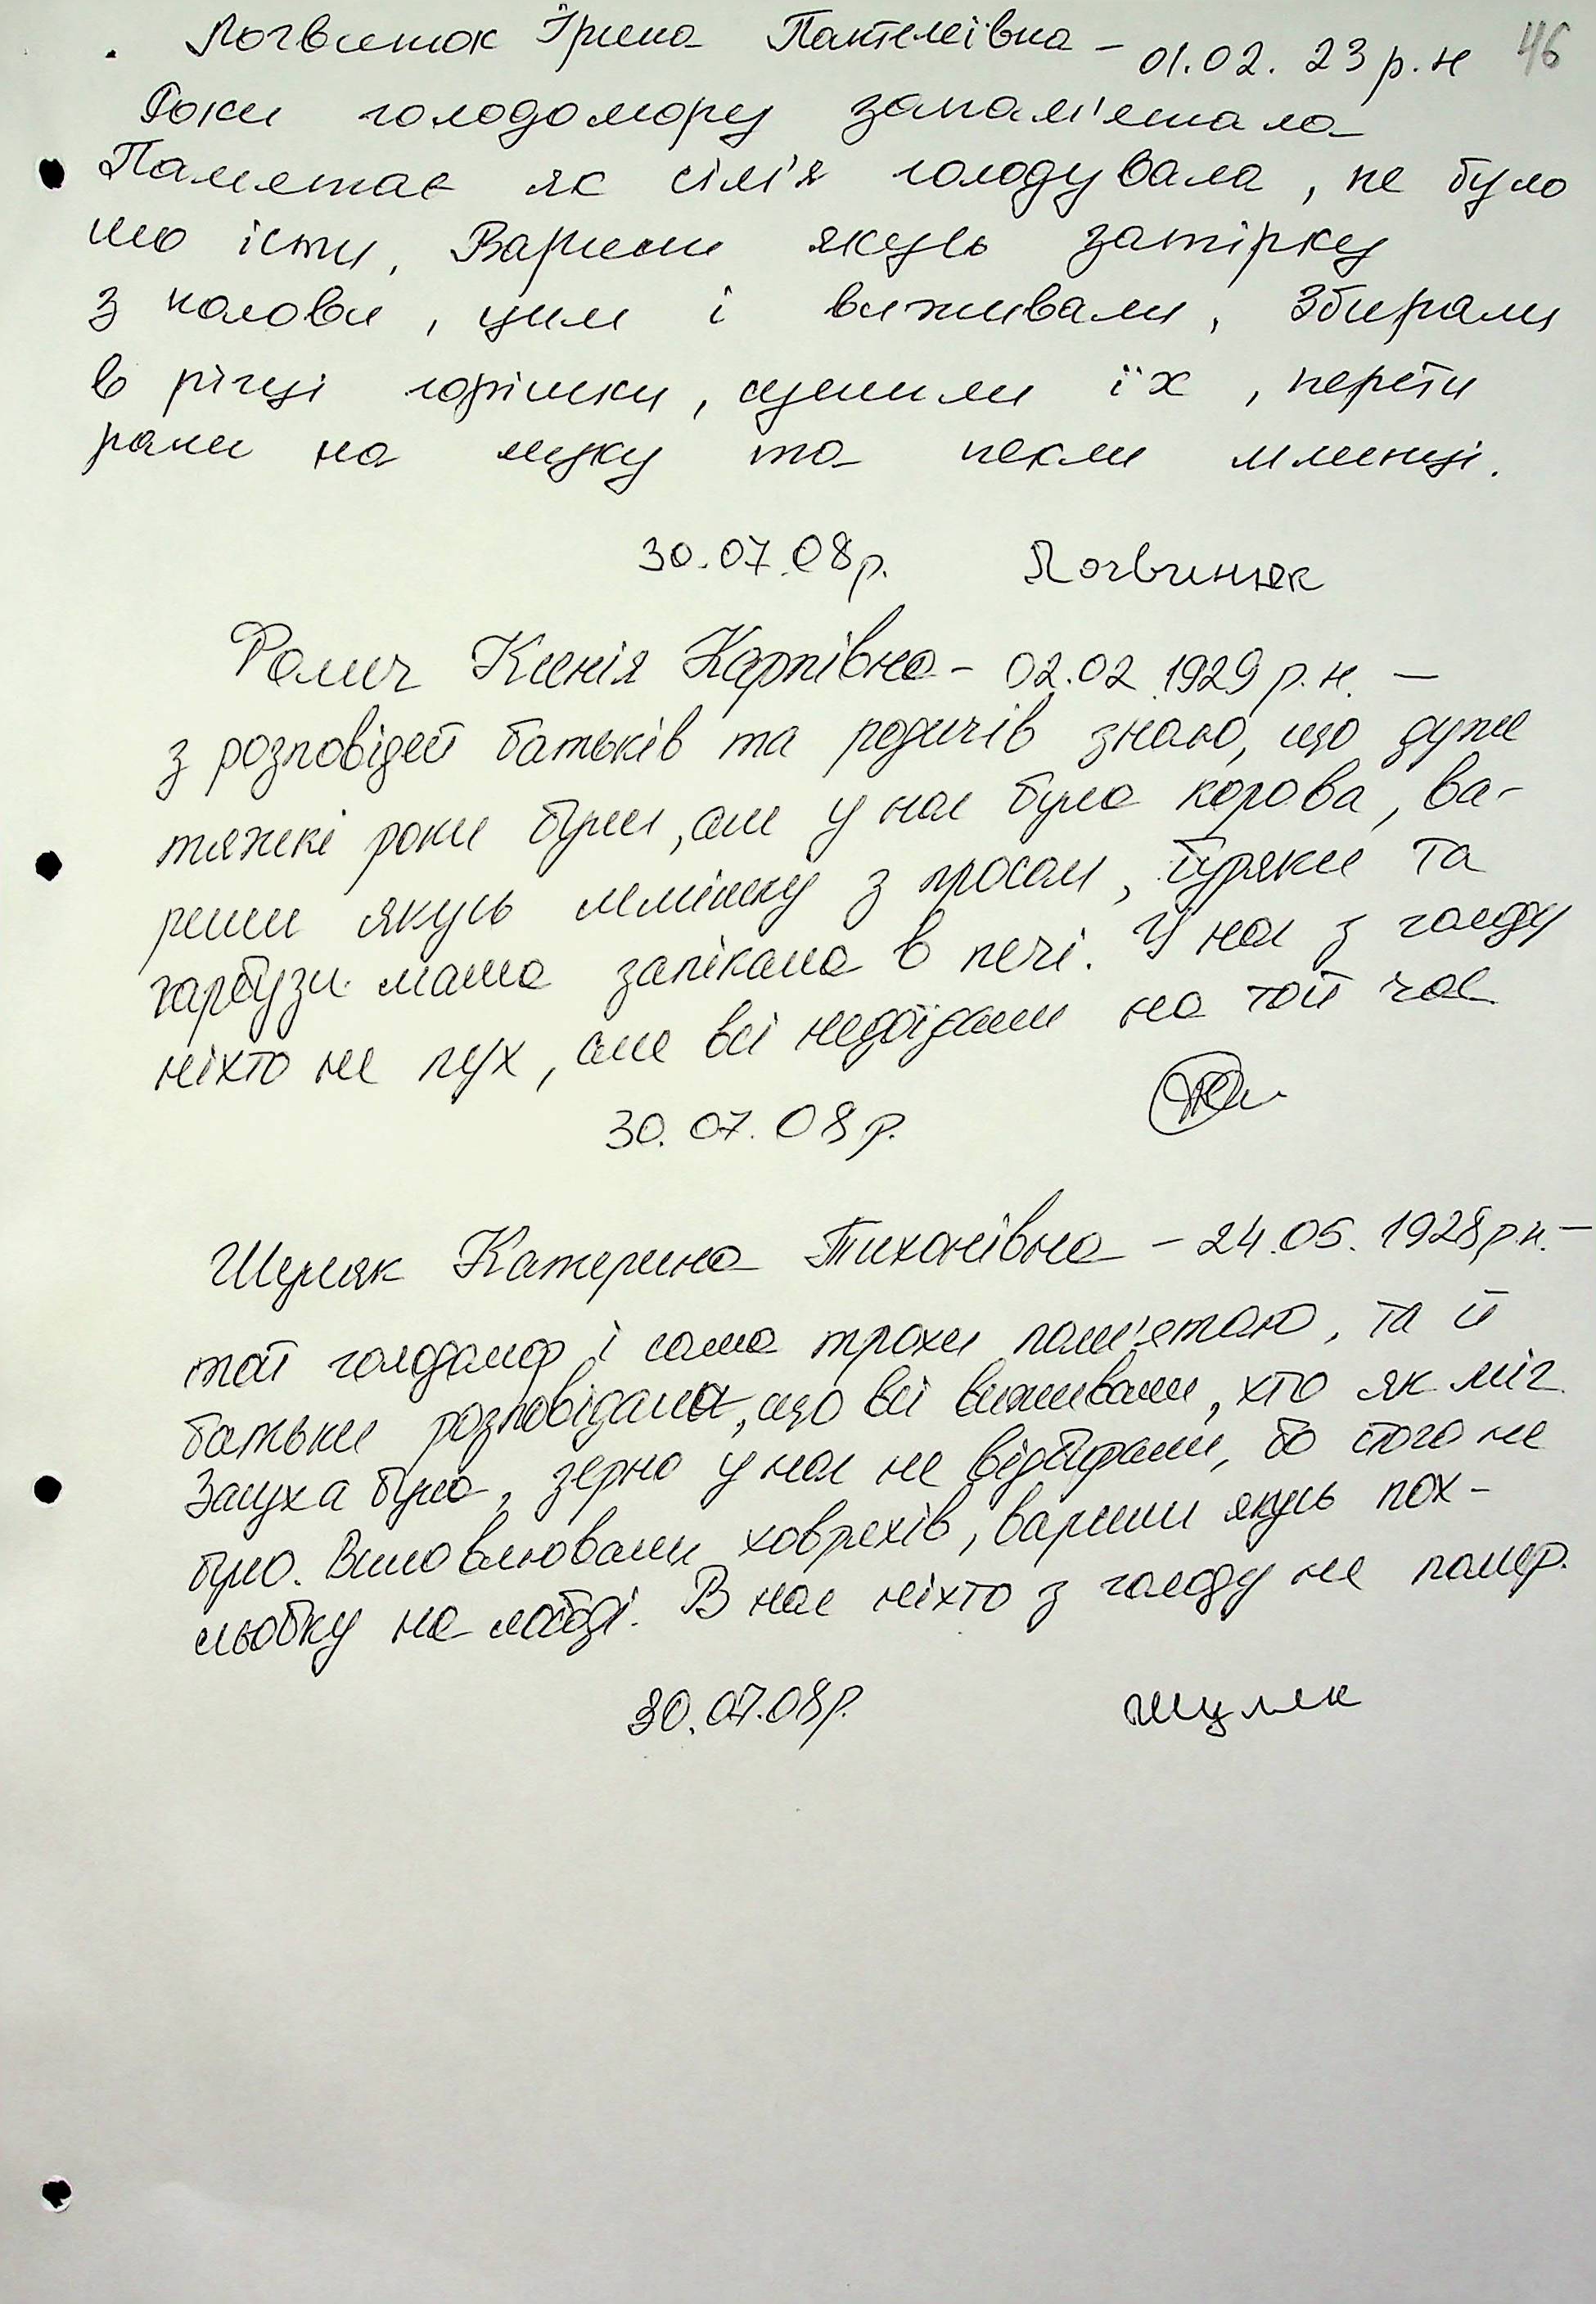 Логвинюк Ірина Пантелеївна - 01.02.23 р.н 46
Роки голодомору запам'ятала
Памятає як сім'я голодувала, не було
що їсти. Варили якусь затірку
з полови, цим і виживали, збирали
в річці горішки, сушили їх, перети
рали на муку та пекли млинці.
30.07.08р. Логвинюк
Ромич Ксенія Карпівна - 02.02.1929 р.н. —
з розповідей батьків та родичів знаю, що дуже
тяжкі роки були, але у нас була корова, ва-
рили якусь мішку з просом, буряки та
гарбузи мама запікала в печі. У нас з голоду
ніхто не пух, але всі недоїдали на той час
30.07.08р.
Шуляк Катерина Тихонівна - 24.05.1928р.н. —
той голодомор і сама трохи пам'ятаю, та й
батьки розповідали, що всі виживали, хто як міг.
Засуха була, зерно у нас не відбирали, бо його не
було. Виловлювали ховрахів, варили якусь пох-
льобку на лободі. В нас ніхто з голоду не помер.
30.07.08р. Шуляк